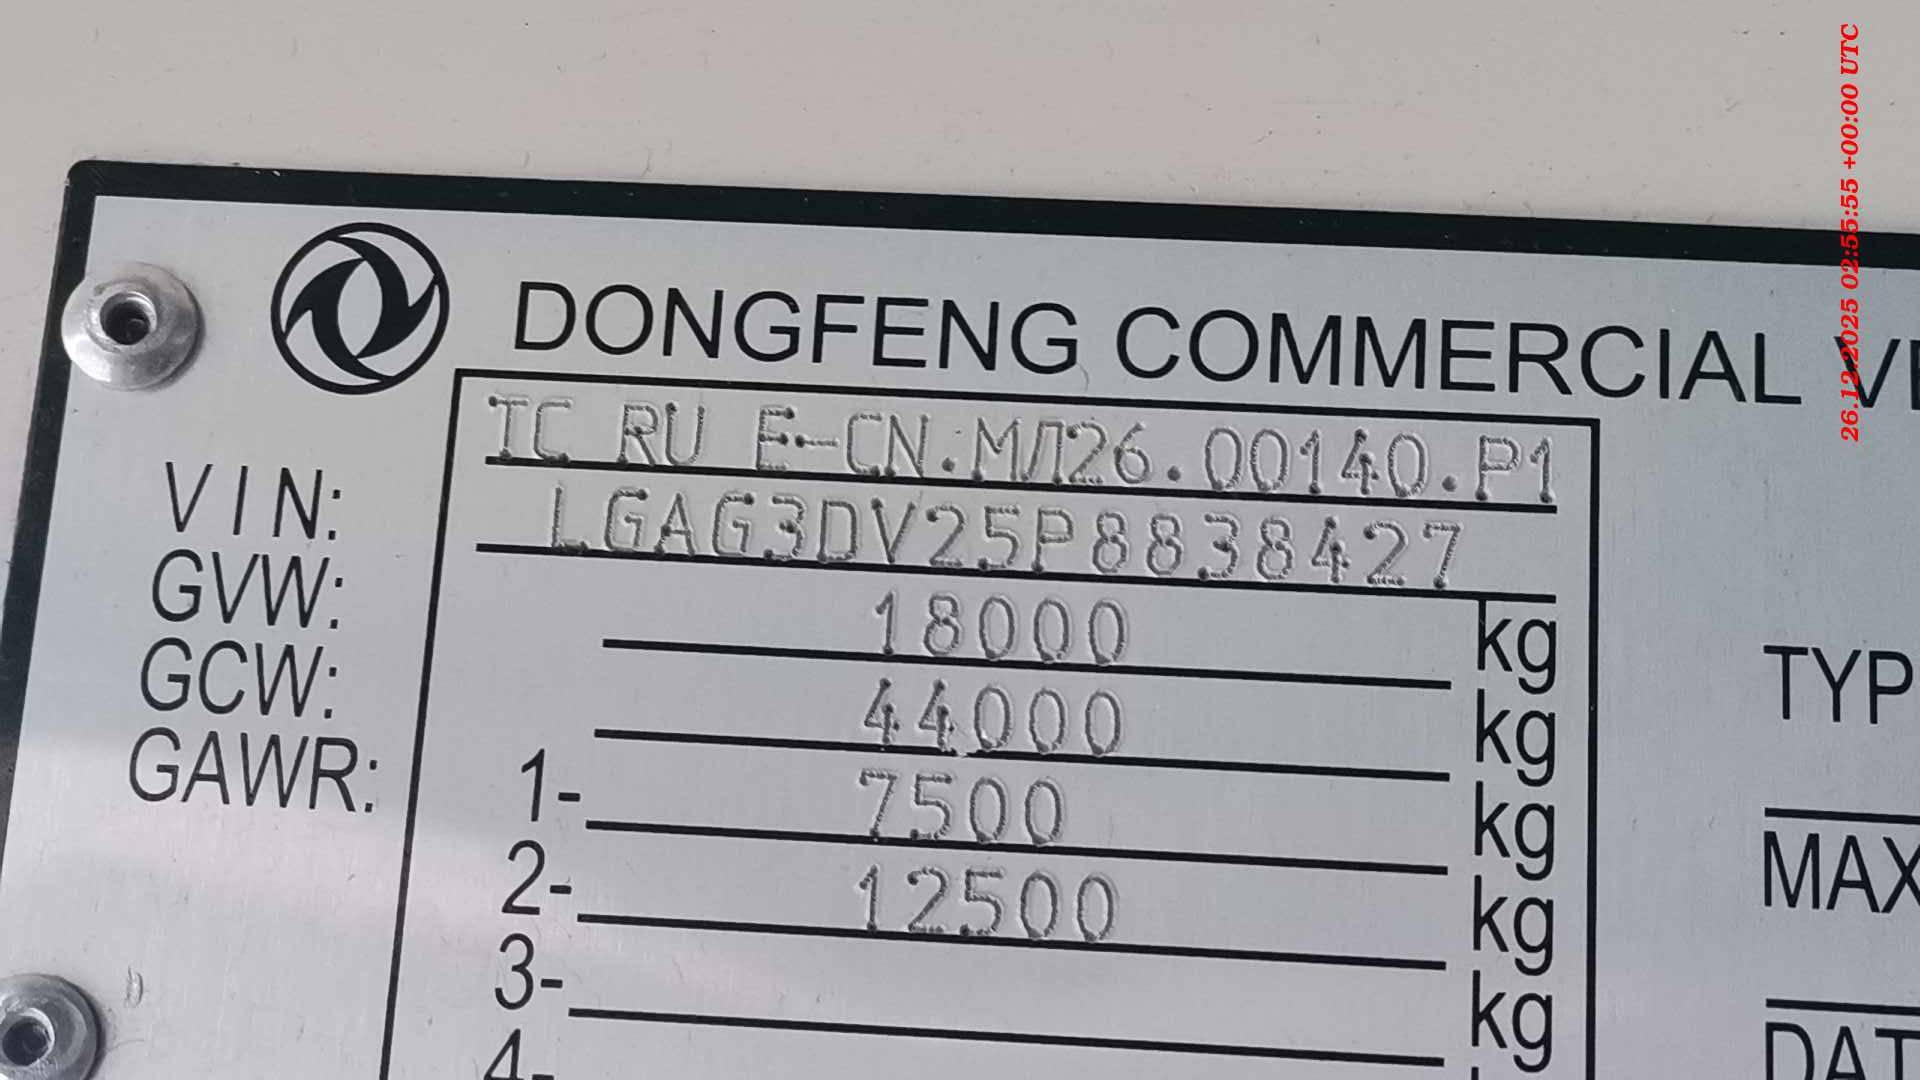 DONGFENG COMMERCIAL VE
TC RU E-CN.МЛ26.00140.P1
VIN: LGAG3DV25P8838427
GVW: 18000 kg
GCW: 44000 kg
GAWR: 1- 7500 kg
2- 12500 kg
3- kg
4-
TYP
MAX
DAT
26.12.2025 02:55:55 +00:00 UTC